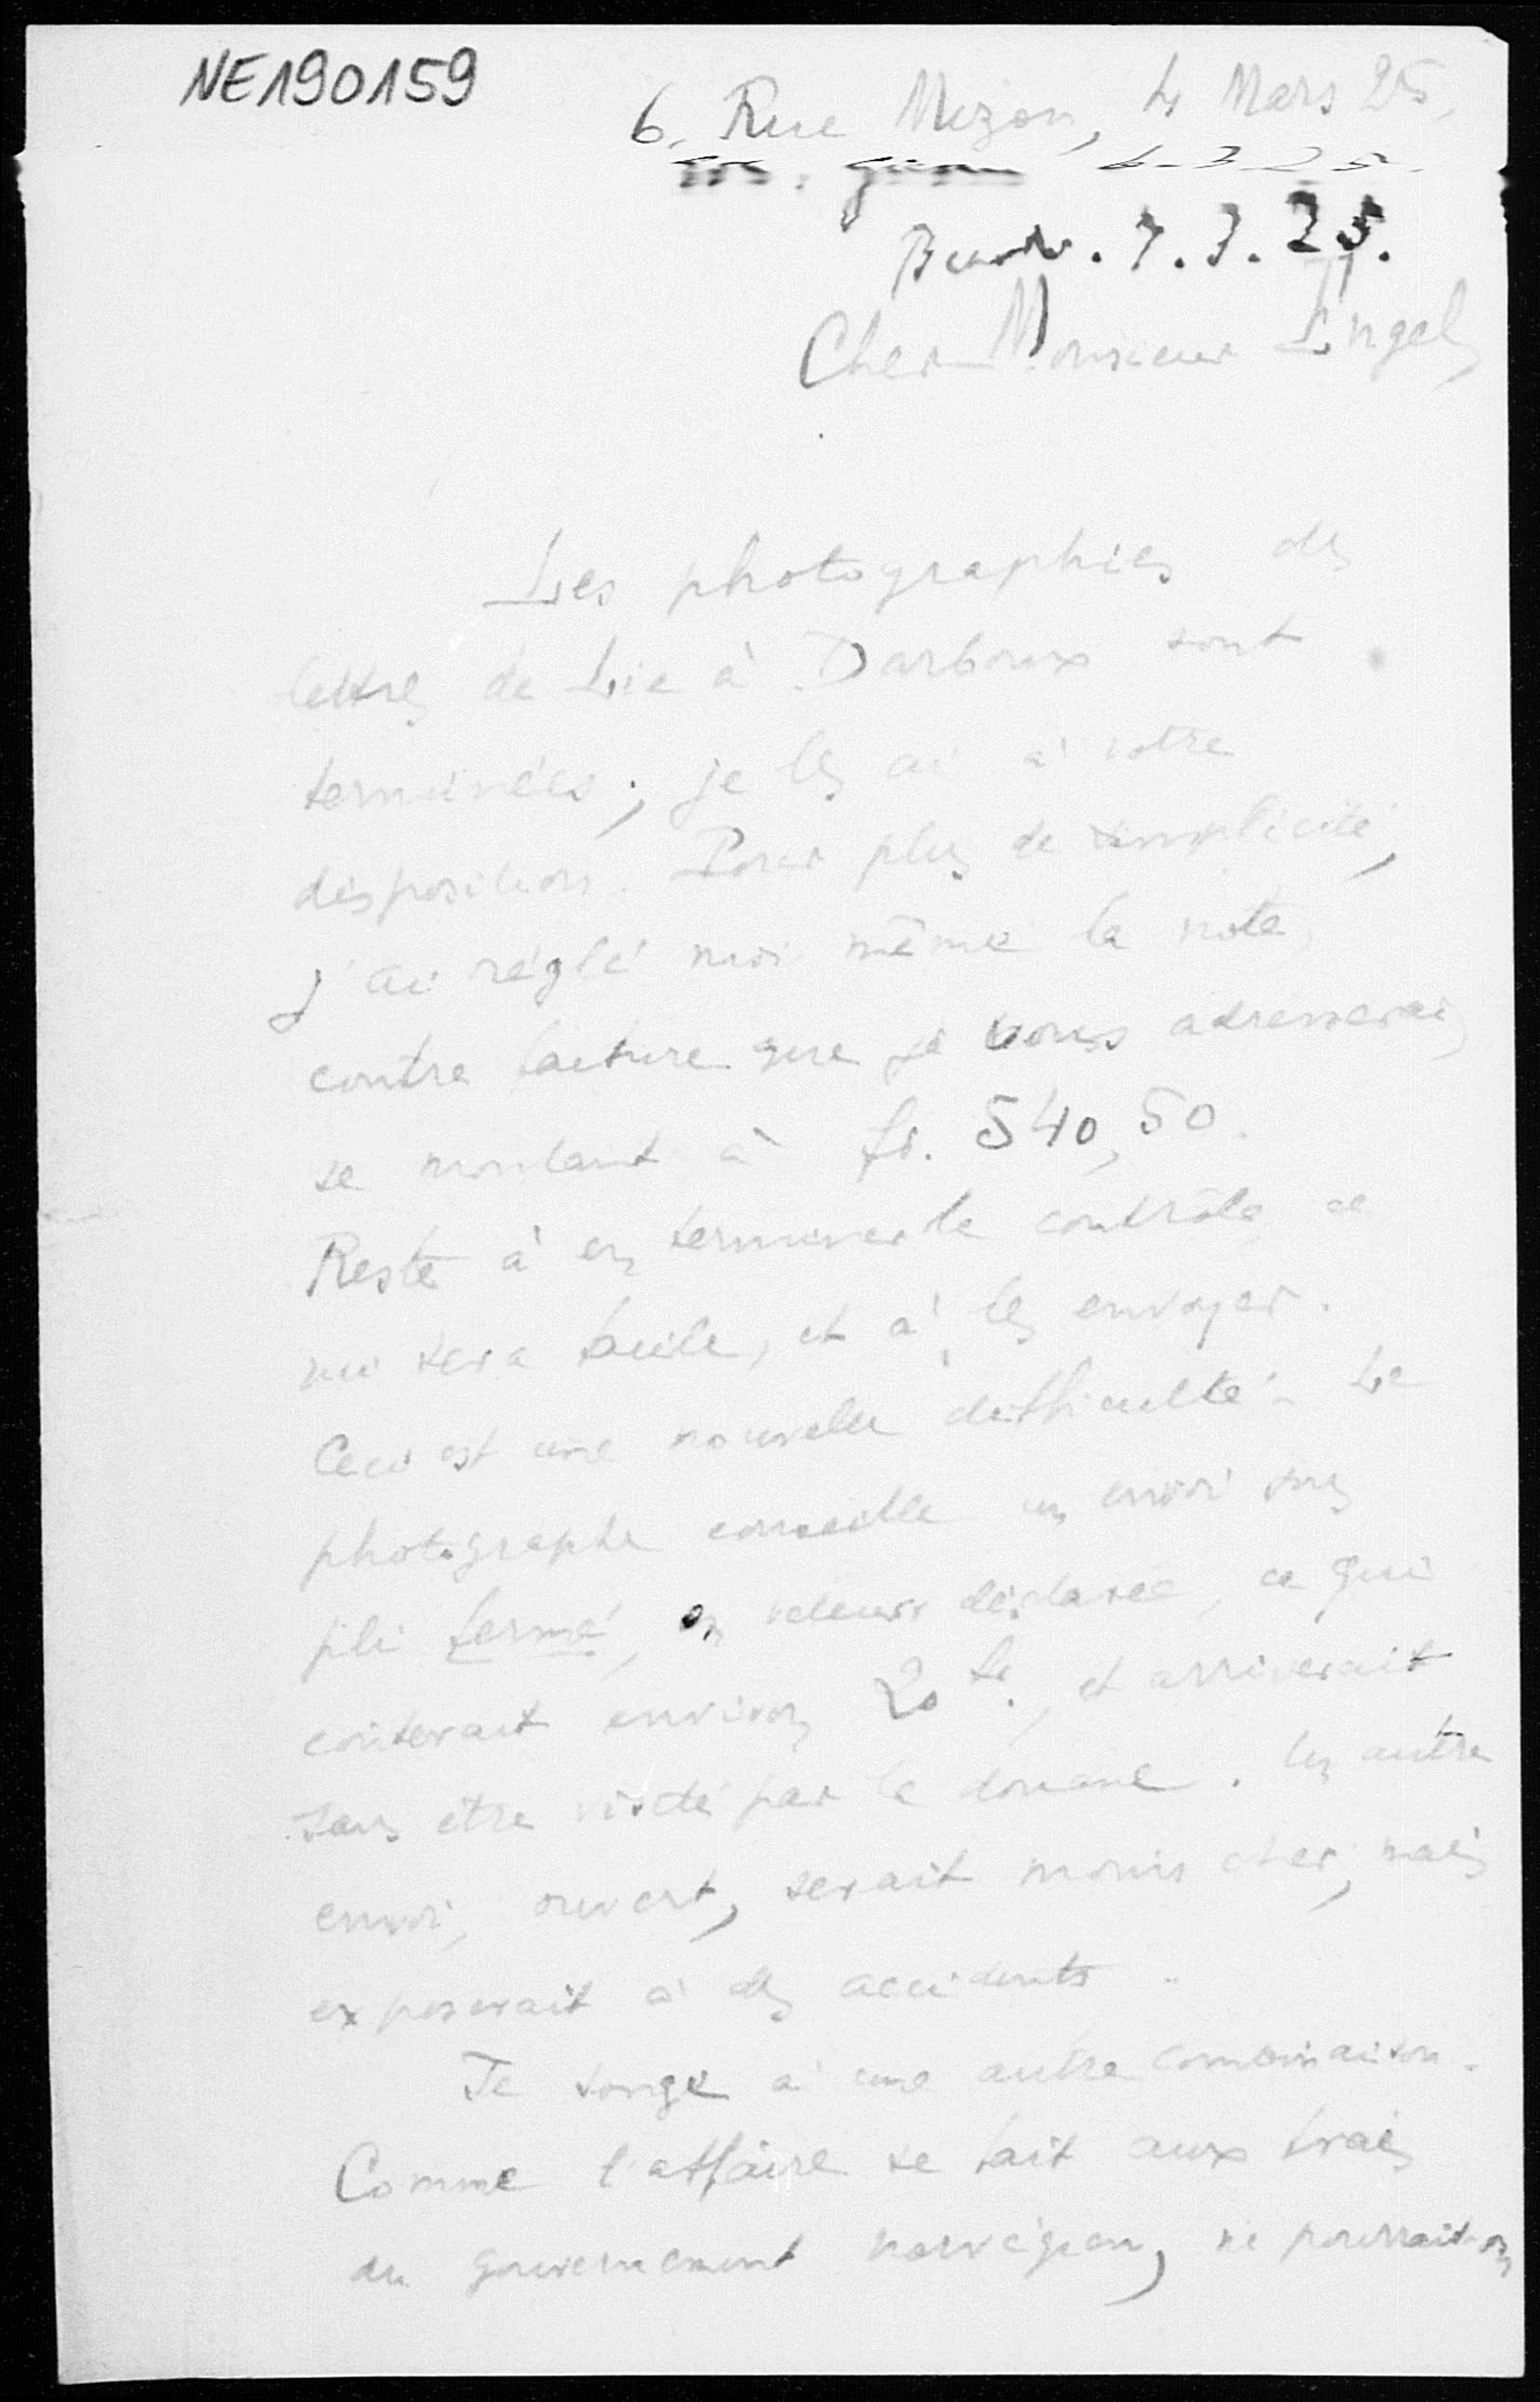 NE190159
6, Rue Mizon, 4 Mars 25.
6-3-25.
Beantw. 7.3.25.
Cher Monsieur Engel,
Les photographies des
lettres de Lie à Darboux sont
terminées ; je les ai à votre
disposition. Pour plus de simplicité,
j'ai réglé moi même la note,
contre facture que je vous adresserai,
se montant à fr. 540,50.
Reste à en terminer le contrôle, ce
qui sera facile, et à les envoyer.
Ceci est une nouvelle difficulté. Le
photographe conseille un envoi sous
pli fermé, en valeur déclarée, ce qui
coûterait environ 20 fr., et arriverait
sans être visité par la douane. Un autre
envoi, ouvert, serait moins cher, mais
exposerait à des accidents.
Je songe à une autre combinaison.
Comme l'affaire se fait aux frais
du gouvernement norvégien, ne pourrait-on